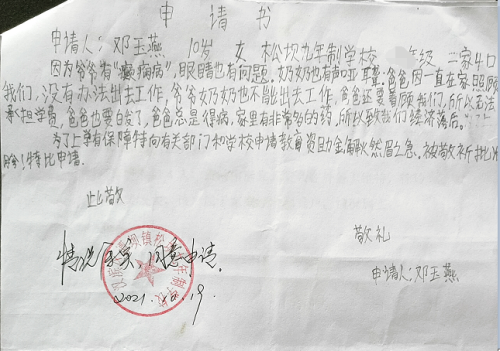 申请书
申请人：邓玉燕 10岁 女 松坝九年制学校 年级 二家4口
因为爷爷有"癫痫病"，眼睛也有问题。奶奶也有 哑聋。爸爸因一直在家照顾
我们，没有办法出去工作，爷爷奶奶也不能出去工作，爸爸还要照顾我们，所以无法
承担学费。爸爸也要 了，爸爸总是得病，家里有非常多的药，所以致我们经济落后。
为了上学有保障特向有关部门和学校申请教育资助金解决燃眉之急、被敬祈批准
！特比申请。
此敬
敬礼
情况属实，同意申请。
申请人：邓玉燕
2021.10.19.